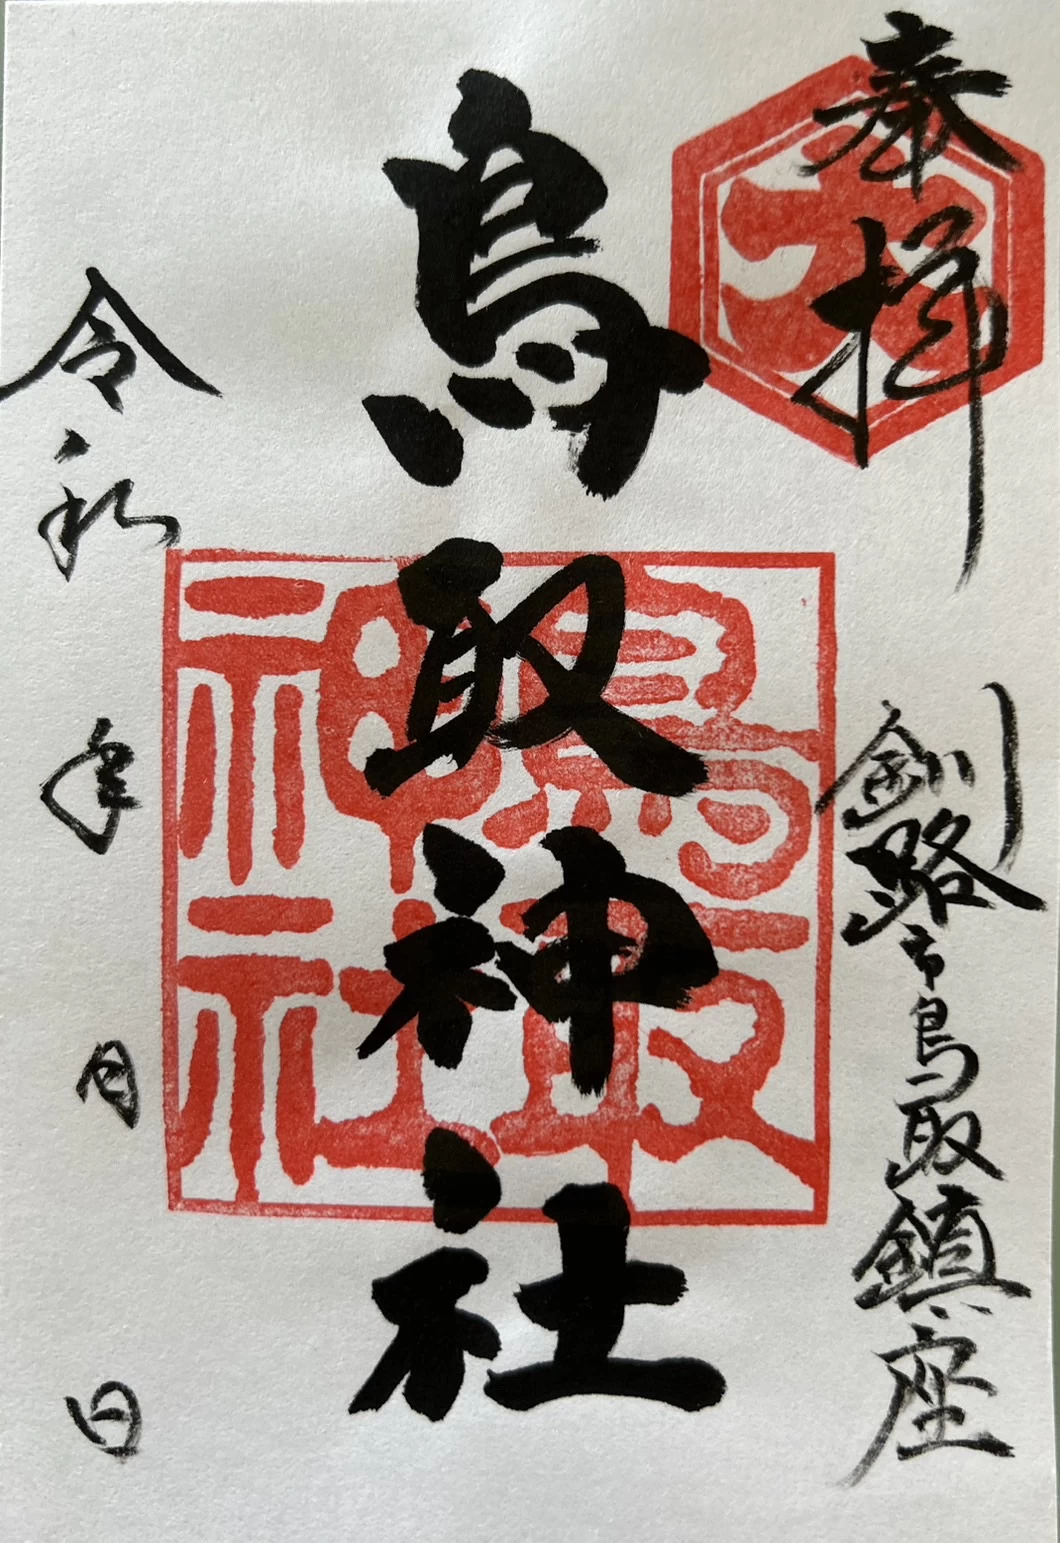 奉拝
釧路市鳥取鎮座
鳥取神社
鳥取神社
令和 年 月 日